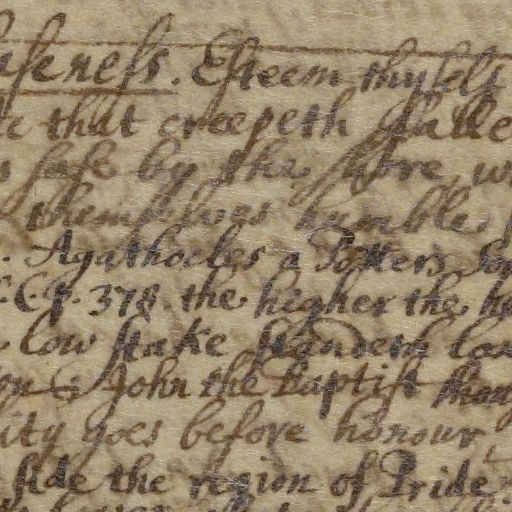 aseness. Esteem thyself
e that creepeth falle
safe by the shore, w
themselves humble
. Agathocles a Potters Son
C. 378. the higher the
low stake standeth lon
John the Baptist thoug
ity goes before honour,
side the region of Pride